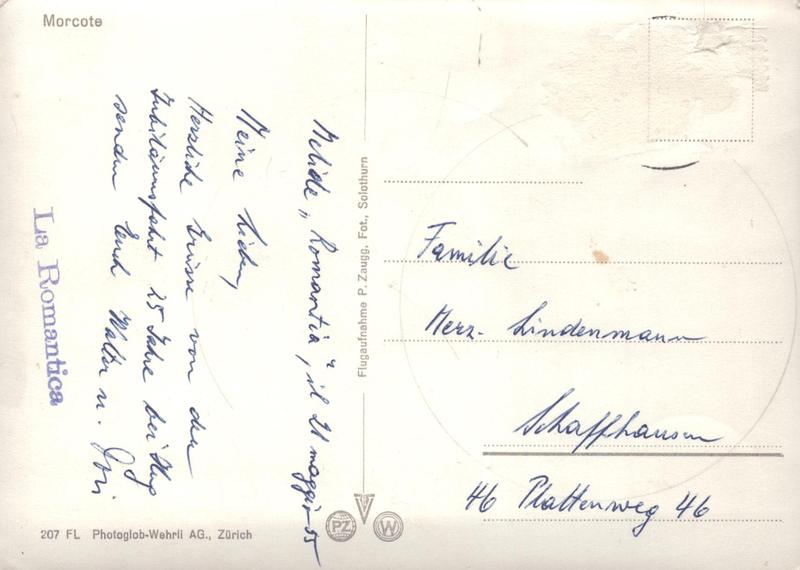 Morcote
Melide „Romantica", il 21 maggio 55
Meine Lieben,
Herzliche Grüsse von der
Jubiläumsfahrt 25 Jahre bei Hug
senden Euch Walter u.
La Romantica
207 FL Photoglob-Wehrli AG., Zürich
Flugaufnahme P. Zaugg, Fot., Solothurn
PZ W
Familie
Merz-Lindenmann
Schaffhausen
46 Plattenweg 46